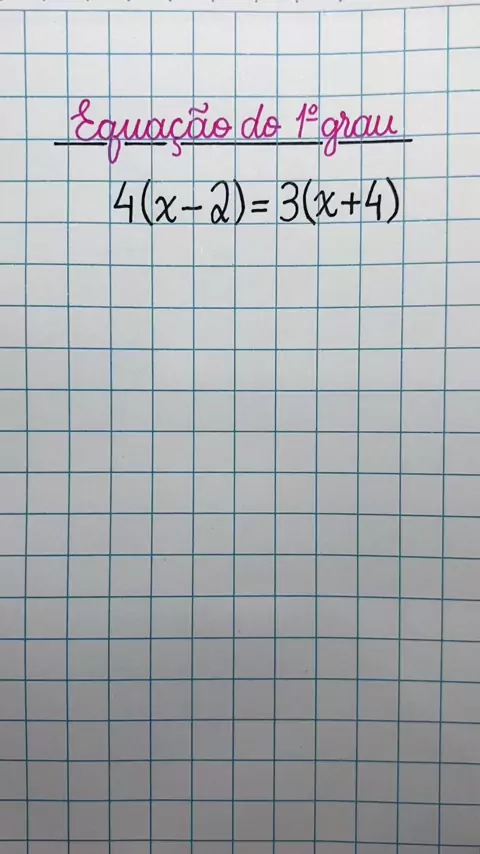 Equação do 1º grau
4(x-2)=3(x+4)